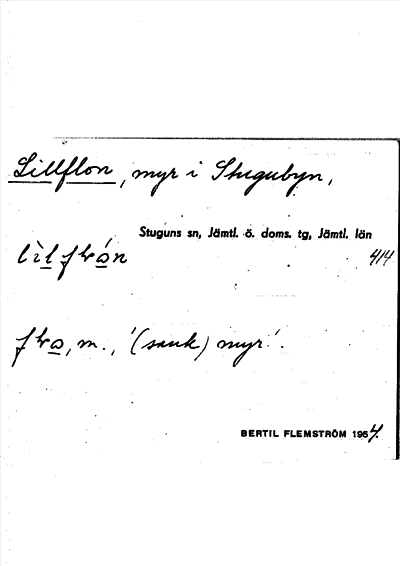 Lillflon, myr i Stugubyn,
Stuguns sn, Jämtl. ö. doms. tg, Jämtl. län
lìlfłɷ́n 414
fłɷ, m., '(sank) myr'.
BERTIL FLEMSTRÖM 1954.